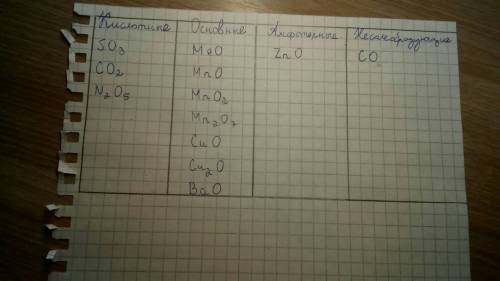 Кислотные Основные Амфотерные Несолеобразующие
SO3 MgO ZnO CO
CO2 MnO
N2O5 MnO2
Mn2O7
CuO
Cu2O
BaO